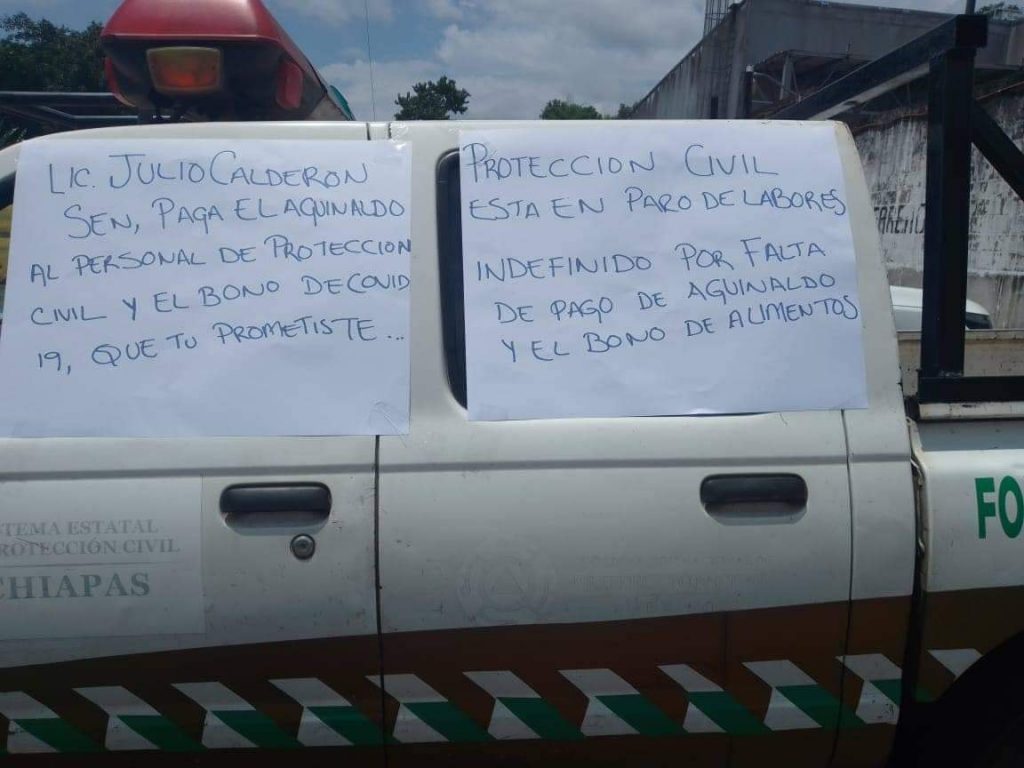 LIC. JULIO CALDERON
SEN, PAGA EL AGUINALDO
AL PERSONAL DE PROTECCION
CIVIL Y EL BONO DE COVID
19, QUE TU PROMETISTE...
PROTECCION CIVIL
ESTA EN PARO DE LABORES
INDEFINIDO POR FALTA
DE PAGO DE AGUINALDO
Y EL BONO DE ALIMENTOS
TEMA ESTATAL
ROTECCIÓN CIVIL
CHIAPAS
FO